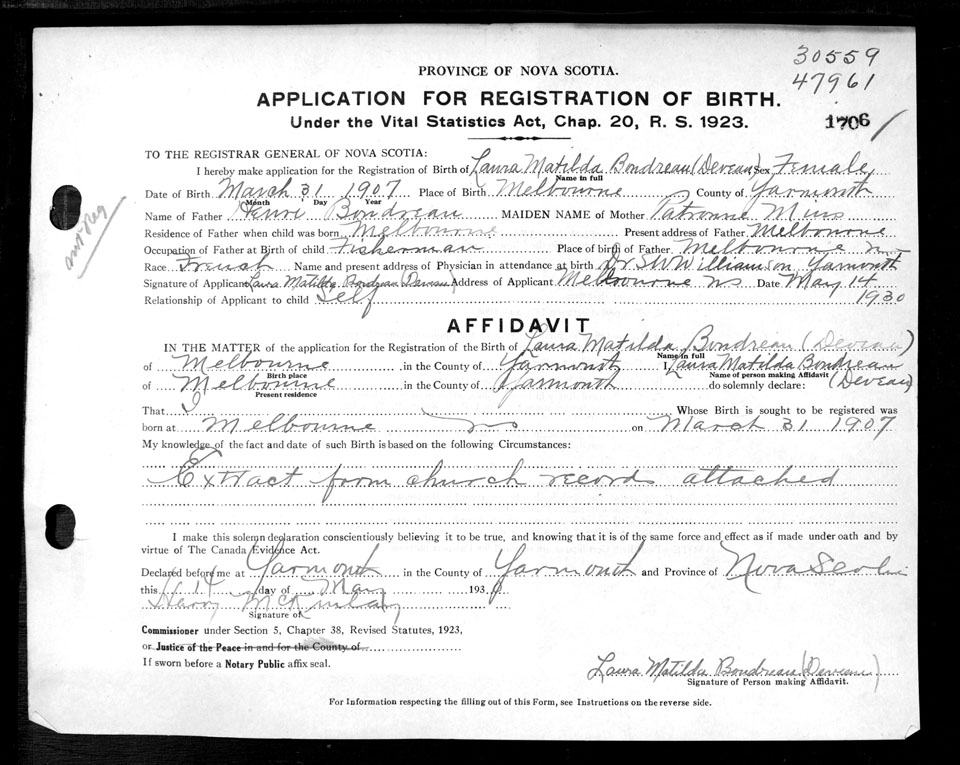 30559
47961
PROVINCE OF NOVA SCOTIA.
APPLICATION FOR REGISTRATION OF BIRTH.
Under the Vital Statistics Act, Chap. 20, R. S. 1923.
1706
TO THE REGISTRAR GENERAL OF NOVA SCOTIA:
I hereby make application for the Registration of Birth of Laura Matilda Boudreau (Deveau) Sex Female
Name in full
Date of Birth March 31 1907 Place of Birth Melbourne County of Yarmouth
Month Day Year
Name of Father Henri Boudreau MAIDEN NAME of Mother Patronne Muis
Residence of Father when child was born Melbourne Present address of Father Melbourne
Occupation of Father at Birth of child Fisherman Place of birth of Father Melbourne NS
Race French Name and present address of Physician in attendance at birth Dr S W Williamson Yarmouth
Signature of Applicant Laura Matilda Boudreau (Deveau) Address of Applicant Melbourne NS Date May 14
Relationship of Applicant to child Self 1930
AFFIDAVIT
IN THE MATTER of the application for the Registration of the Birth of Laura Matilda Boudreau (Deveau)
Name in full
of Melbourne in the County of Yarmouth I, Laura Matilda Boudreau
Birth place Name of person making Affidavit
of Melbourne in the County of Yarmouth do solemnly declare: (Deveau)
Present residence
That I Whose Birth is sought to be registered was
born at Melbourne NS on March 31 1907
My knowledge of the fact and date of such Birth is based on the following Circumstances:
Extract from church records attached
I make this solemn declaration conscientiously believing it to be true, and knowing that it is of the same force and effect as if made under oath and by
virtue of The Canada Evidence Act.
Declared before me at Yarmouth in the County of Yarmouth and Province of Nova Scotia
this 14 day of May 1930
Harry McKinlay
Signature of
Commissioner under Section 5, Chapter 38, Revised Statutes, 1923,
or Justice of the Peace in and for the County of
If sworn before a Notary Public affix seal.
Laura Matilda Boudreau (Deveau)
Signature of Person making Affidavit.
For Information respecting the filling out of this Form, see Instructions on the reverse side.